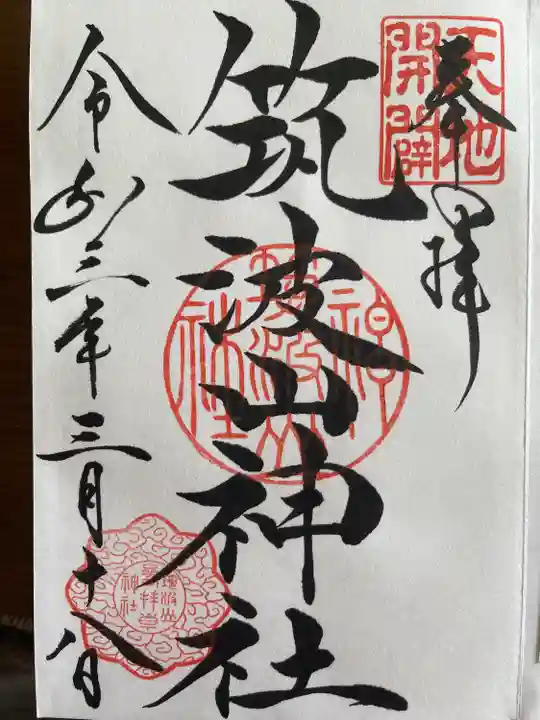 奉拝
天地
開闢
筑波山神社
筑波山
神社
令和三年三月十八日
筑波山
神社